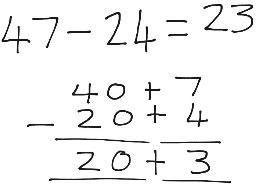 47-24=23
40+7
-20+4
20+3